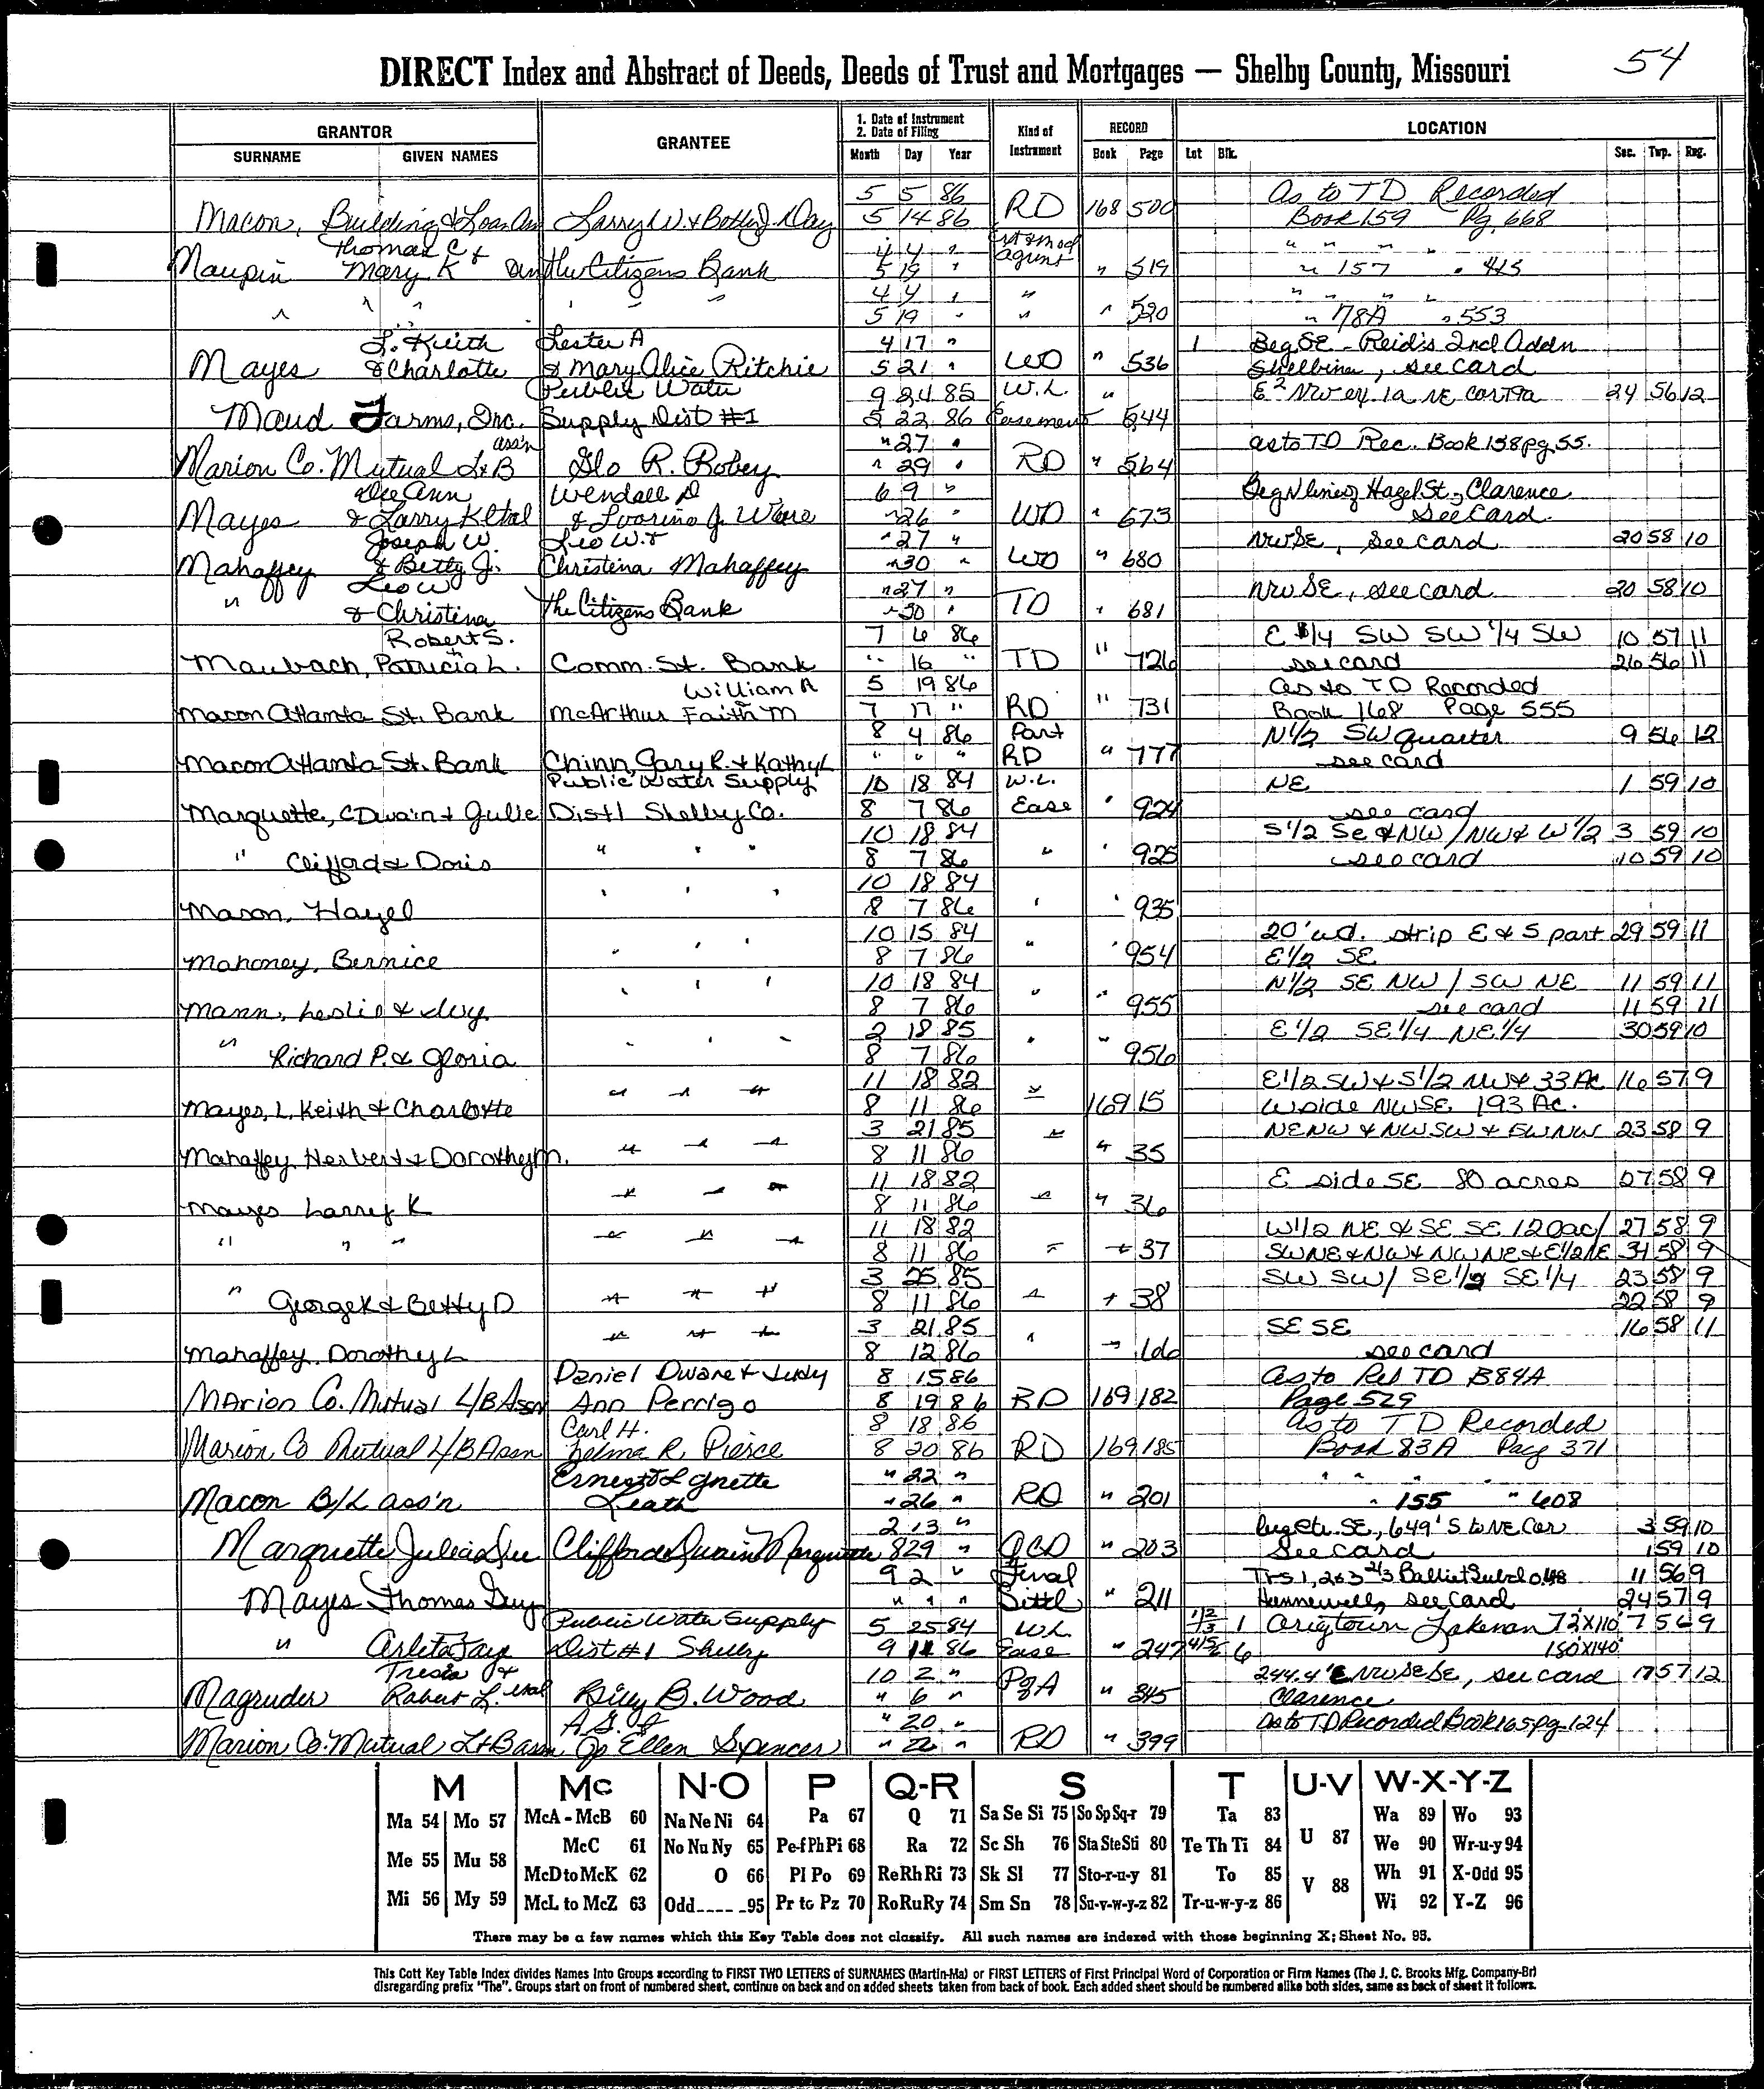 54
DIRECT Index and Abstract of Deeds, Deeds of Trust and Mortgages — Shelby County, Missouri
GRANTOR GRANTEE 1. Date of Instrument 2. Date of Filing Kind of Instrument RECORD LOCATION
SURNAME GIVEN NAMES Month Day Year Book Page Lot Blk. Sec. Twp. Rng.
5 5 86 As to TD Recorded
Macon, Building & Loan Larry W. & Betty J. Day 5 14 86 RD 168 500 Book 159 Pg 668
Thomas C & 4 4 " " " " "
Maupin Mary K The Citizens Bank 5 19 " agmt " 519 " 157 " 415
4 4 " " " " " "
" " " " " " 5 19 " " " 520 " 78A " 553
L. Keith Lester A 4 17 " 1 Beg SE - Reid's 2nd Addn
Mayes & Charlotte & Mary Alice Ritchie 5 21 " WD " 536 Shelbina, see card
Public Water 9 24 85 W.L. " 24 56 12
Maud Farms, Inc. Supply Dist #1 5 22 86 Easement 544
ass'n " 27 " as to TD Rec. Book 158 pg 55.
Marion Co. Mutual L&B Glo R. Robey " 29 " RD " 564
Dee Ann Wendall D 6 9 " Beg N line of Hazel St., Clarence
Mayes & Larry K etal & " 26 " WD " 673 See Card.
Joseph W. Leo W. & " 27 " NWSE, see card 20 58 10
Mahaffey & Betty J. Christina Mahaffey " 30 " WD " 680
" Leo W " 27 " NWSE, see card 20 58 10
& Christina The Citizens Bank " 30 " TD " 681
Robert S. 7 6 86 E 3/4 SW SW 1/4 SW 10 57 11
Maubach, Patricia L. Comm. St. Bank " 16 " TD " 726 see card 26 56 11
William A 5 19 86 as to TD Recorded
Macon Atlanta St. Bank McArthur Faith M 7 17 " RD " 731 Book 168 Page 555
8 4 86 Part N1/2 SW Quarter 9 56 12
Macon Atlanta St. Bank Chinn, Gary R. & Kathy L " " " RD " 777 see card
Public Water Supply 10 18 84 W.L. NE 1 59 10
Marquette, C Dwain & Julie Dist 1 Shelby Co. 8 7 86 Ease " 924 see card
10 18 84 S1/2 Se & NW / NW & W1/2 3 59 10
" Clifford & Doris " " " 8 7 86 " " 925 see card 10 59 10
10 18 84
Mason, Hazel " " " 8 7 86 " " 935
10 15 84 20' wd. strip E & S part 29 59 11
Mahoney, Bernice " " " 8 7 86 " " 954 E1/2 SE
10 18 84 N1/2 SE NW / SW NE 11 59 11
Mann, Leslie & Ivy " " " 8 7 86 " " 955 see card 11 59 11
2 18 85 E1/2 SE1/4 NE1/4 30 59 10
" Richard P. & Gloria " " " 8 7 86 " " 956
11 18 82 E1/2 SW & S1/2 NW & 33 Ac 16 57 9
Mayes, L. Keith & Charlotte " " " 8 11 86 " 169 15 W side NWSE 193 Ac.
3 21 85 NENW & NWSW & SWNW 23 58 9
Mahaffey Herbert & Dorothy M. " " " 8 11 86 " " 35
11 18 82 E side SE 80 acres 27 58 9
Mayes Larry K " " " 8 11 86 " " 36
11 18 82 W1/2 NE & SE SE 120ac/ 27 58 9
" " " " " " 8 11 86 " " 37 SWNE & NW & NWNE & E1/2NE 34 58 9
3 25 85 SW SW / SE1/2 SE1/4 23 58 9
" George K & Betty D " " " 8 11 86 " " 38 22 58 9
3 21 85 SE SE 16 58 11
Mahaffey, Dorothy L " " " 8 12 86 " " 166 see card
Daniel Dwane & Judy 8 15 86 As to Rel TD B84A
Marion Co. Mutual L/B Assn Ann Perrigo 8 19 86 RD 169 182 Page 529
Carl H. 8 18 86 As to TD Recorded
Marion Co Mutual L/B Assn Zelma R. Pierce 8 20 86 RD 169 185 Book 83A Page 371
" 22 " " " " "
Macon B/L ass'n Leath " 26 " RD " 201 " 155 " 608
2 13 " 3 59 10
Marquette Julia Sue Clifford Dwain Marquette 8 29 " QCD " 203 See card 1 59 10
9 2 " Final 11 56 9
Mayes Thomas Guy " " " Sittl " 211 Hunnewell, see card 24 57 9
Public Water Supply 5 25 84 W.L. 1/2/3 1 Orig town Lakenan 72x110' 7 56 9
" Arleta Faye Dist #1 Shelby 9 11 86 Ease " 247 4/5/6 6 180'x140'
Tresia & 10 2 " 244.4' E NWSESE, see card 17 57 12
Magruder Robert L. etal Billy B. Wood " 6 " PgA " 345 Clarence
A.G. & " 20 " As to TD Recorded Book 165 pg. 124
Marion Co. Mutual L&B assn Jo Ellen Spencer " 22 " RD " 399
M Mc N-O P Q-R S T U-V W-X-Y-Z
Ma 54 Mo 57 McA - McB 60 Na Ne Ni 64 Pa 67 Q 71 Sa Se Si 75 So Sp Sq-r 79 Ta 83 U 87 Wa 89 Wo 93
Me 55 Mu 58 McC 61 No Nu Ny 65 Pe-f Ph Pi 68 Ra 72 Sc Sh 76 Sta Ste Sti 80 Te Th Ti 84 We 90 Wr-u-y 94
McD to McK 62 O 66 Pl Po 69 Re Rh Ri 73 Sk Sl 77 Sto-r-u-y 81 To 85 V 88 Wh 91 X-Odd 95
Mi 56 My 59 McL to McZ 63 Odd---- -95 Pr to Pz 70 Ro Ru Ry 74 Sm Sn 78 Su-v-w-y-z 82 Tr-u-w-y-z 86 Wi 92 Y-Z 96
There may be a few names which this Key Table does not classify. All such names are indexed with those beginning X; Sheet No. 95.
This Cott Key Table Index divides Names Into Groups according to FIRST TWO LETTERS of SURNAMES (Martin-Ma) or FIRST LETTERS of First Principal Word of Corporation or Firm Names (The J. C. Brooks Mfg. Company-Br)
disregarding prefix "The". Groups start on front of numbered sheet, continue on back and on added sheets taken from back of book. Each added sheet should be numbered alike both sides, same as back of sheet it follows.